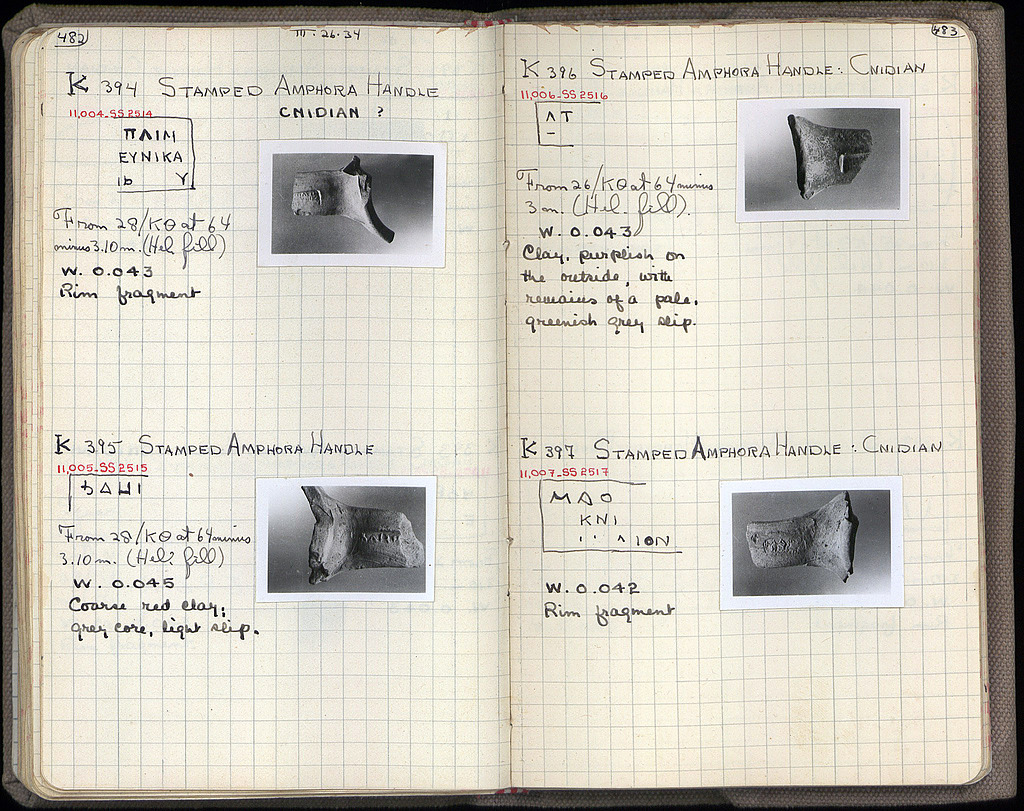 482
III-26-34
K 394 STAMPED AMPHORA HANDLE
11,004-SS 2514
CNIDIAN ?
ΠΛΙΜ
ΕΥΝΙΚΑ
From 28/ΚΘ at 64
minus 3.10 m. (Hel. fill)
W. 0.043
Rim fragment
K 395 STAMPED AMPHORA HANDLE
11,005-SS 2515
From 28/ΚΘ at 64 minus
3.10 m. (Hel. fill)
W. 0.045
Coarse red clay;
grey core, light slip.
483
K 396 STAMPED AMPHORA HANDLE: CNIDIAN
11,006-SS 2516
ΛΤ
From 26/ΚΘ at 64 minus
3 m. (Hel. fill).
W. 0.043
Clay, purplish on
the outside, with
remains of a pale,
greenish grey slip.
K 397 STAMPED AMPHORA HANDLE : CNIDIAN
11,007-SS 2517
ΜΔΟ
ΚΝΙ
ΙΟΝ
W. 0.042
Rim fragment